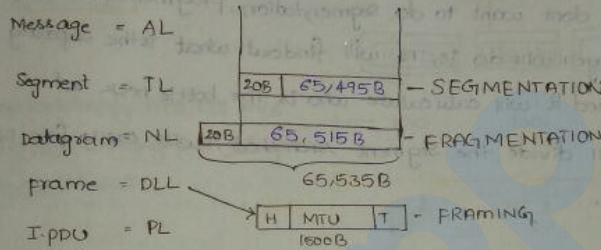 Message = AL
Segment = TL 20B 65,495B - SEGMENTATION
Datagram = NL 20B 65,515B - FRAGMENTATION
65,535B
frame = DLL
H MTU T - FRAMING
I-PDU = PL
1500B